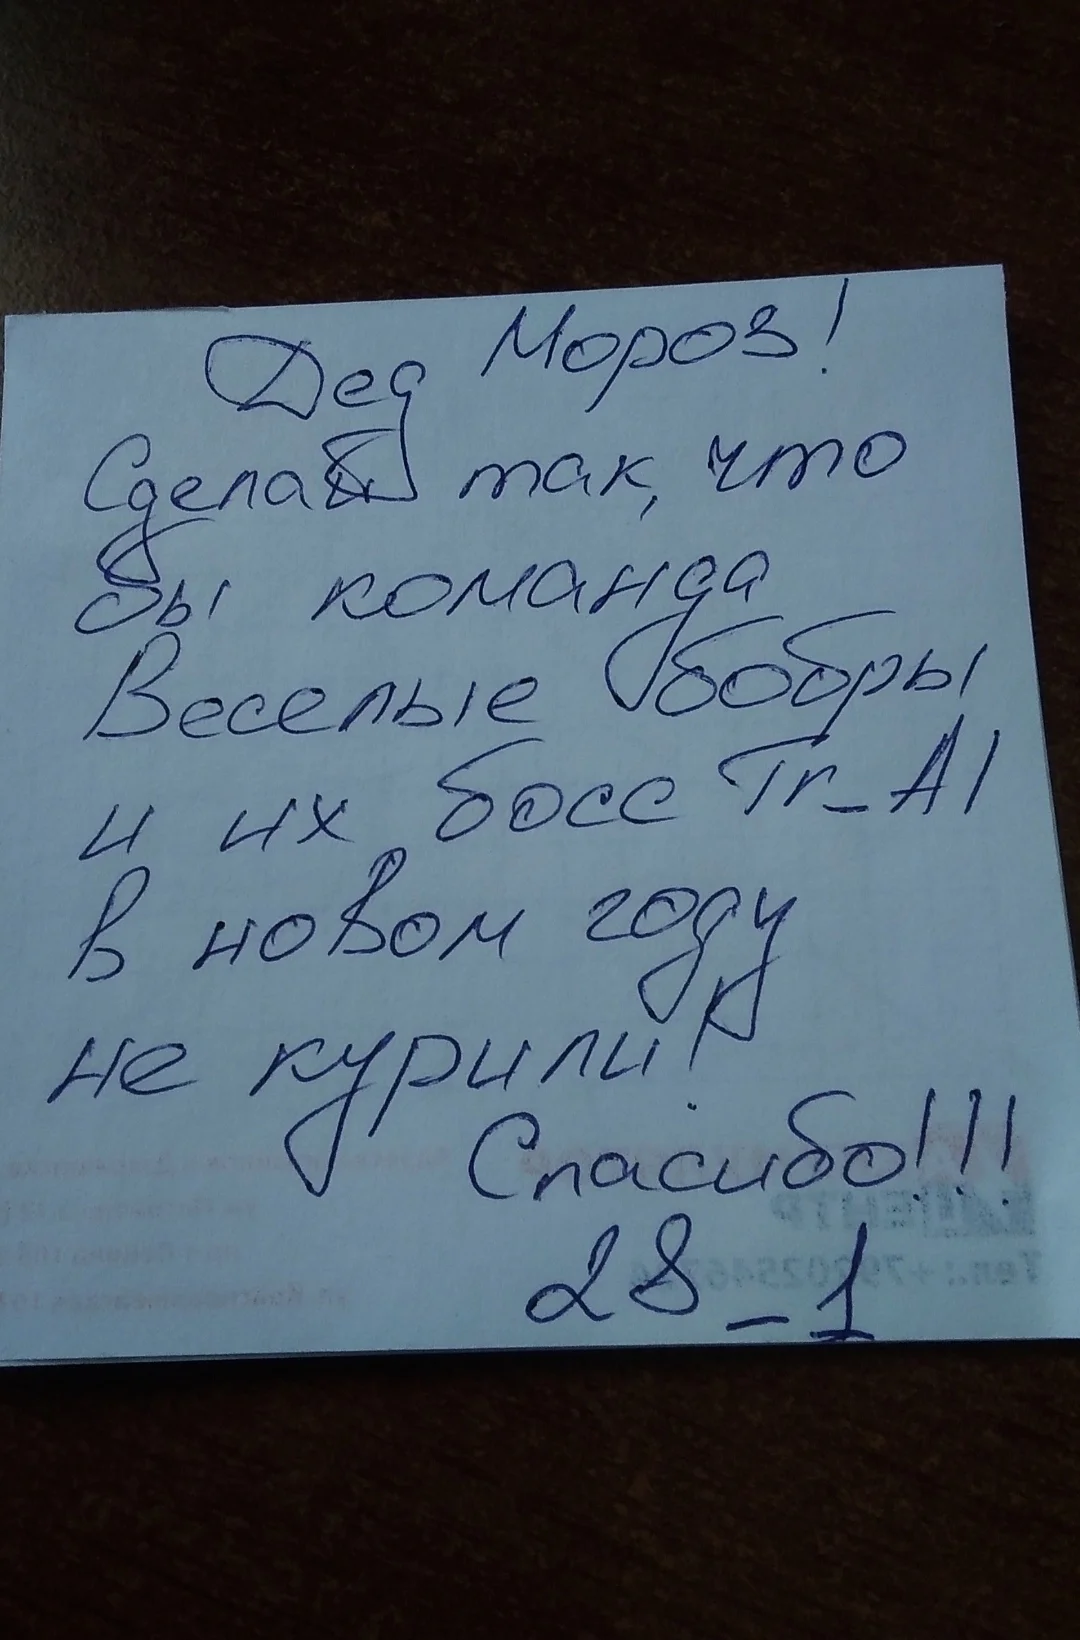 Дед Мороз!
Сделай так, что
бы команда
Веселые бобры
и их босс Tr_Al
в новом году
не курили!
Спасибо!!!
28_1
ЦЕНТР
Тел.: